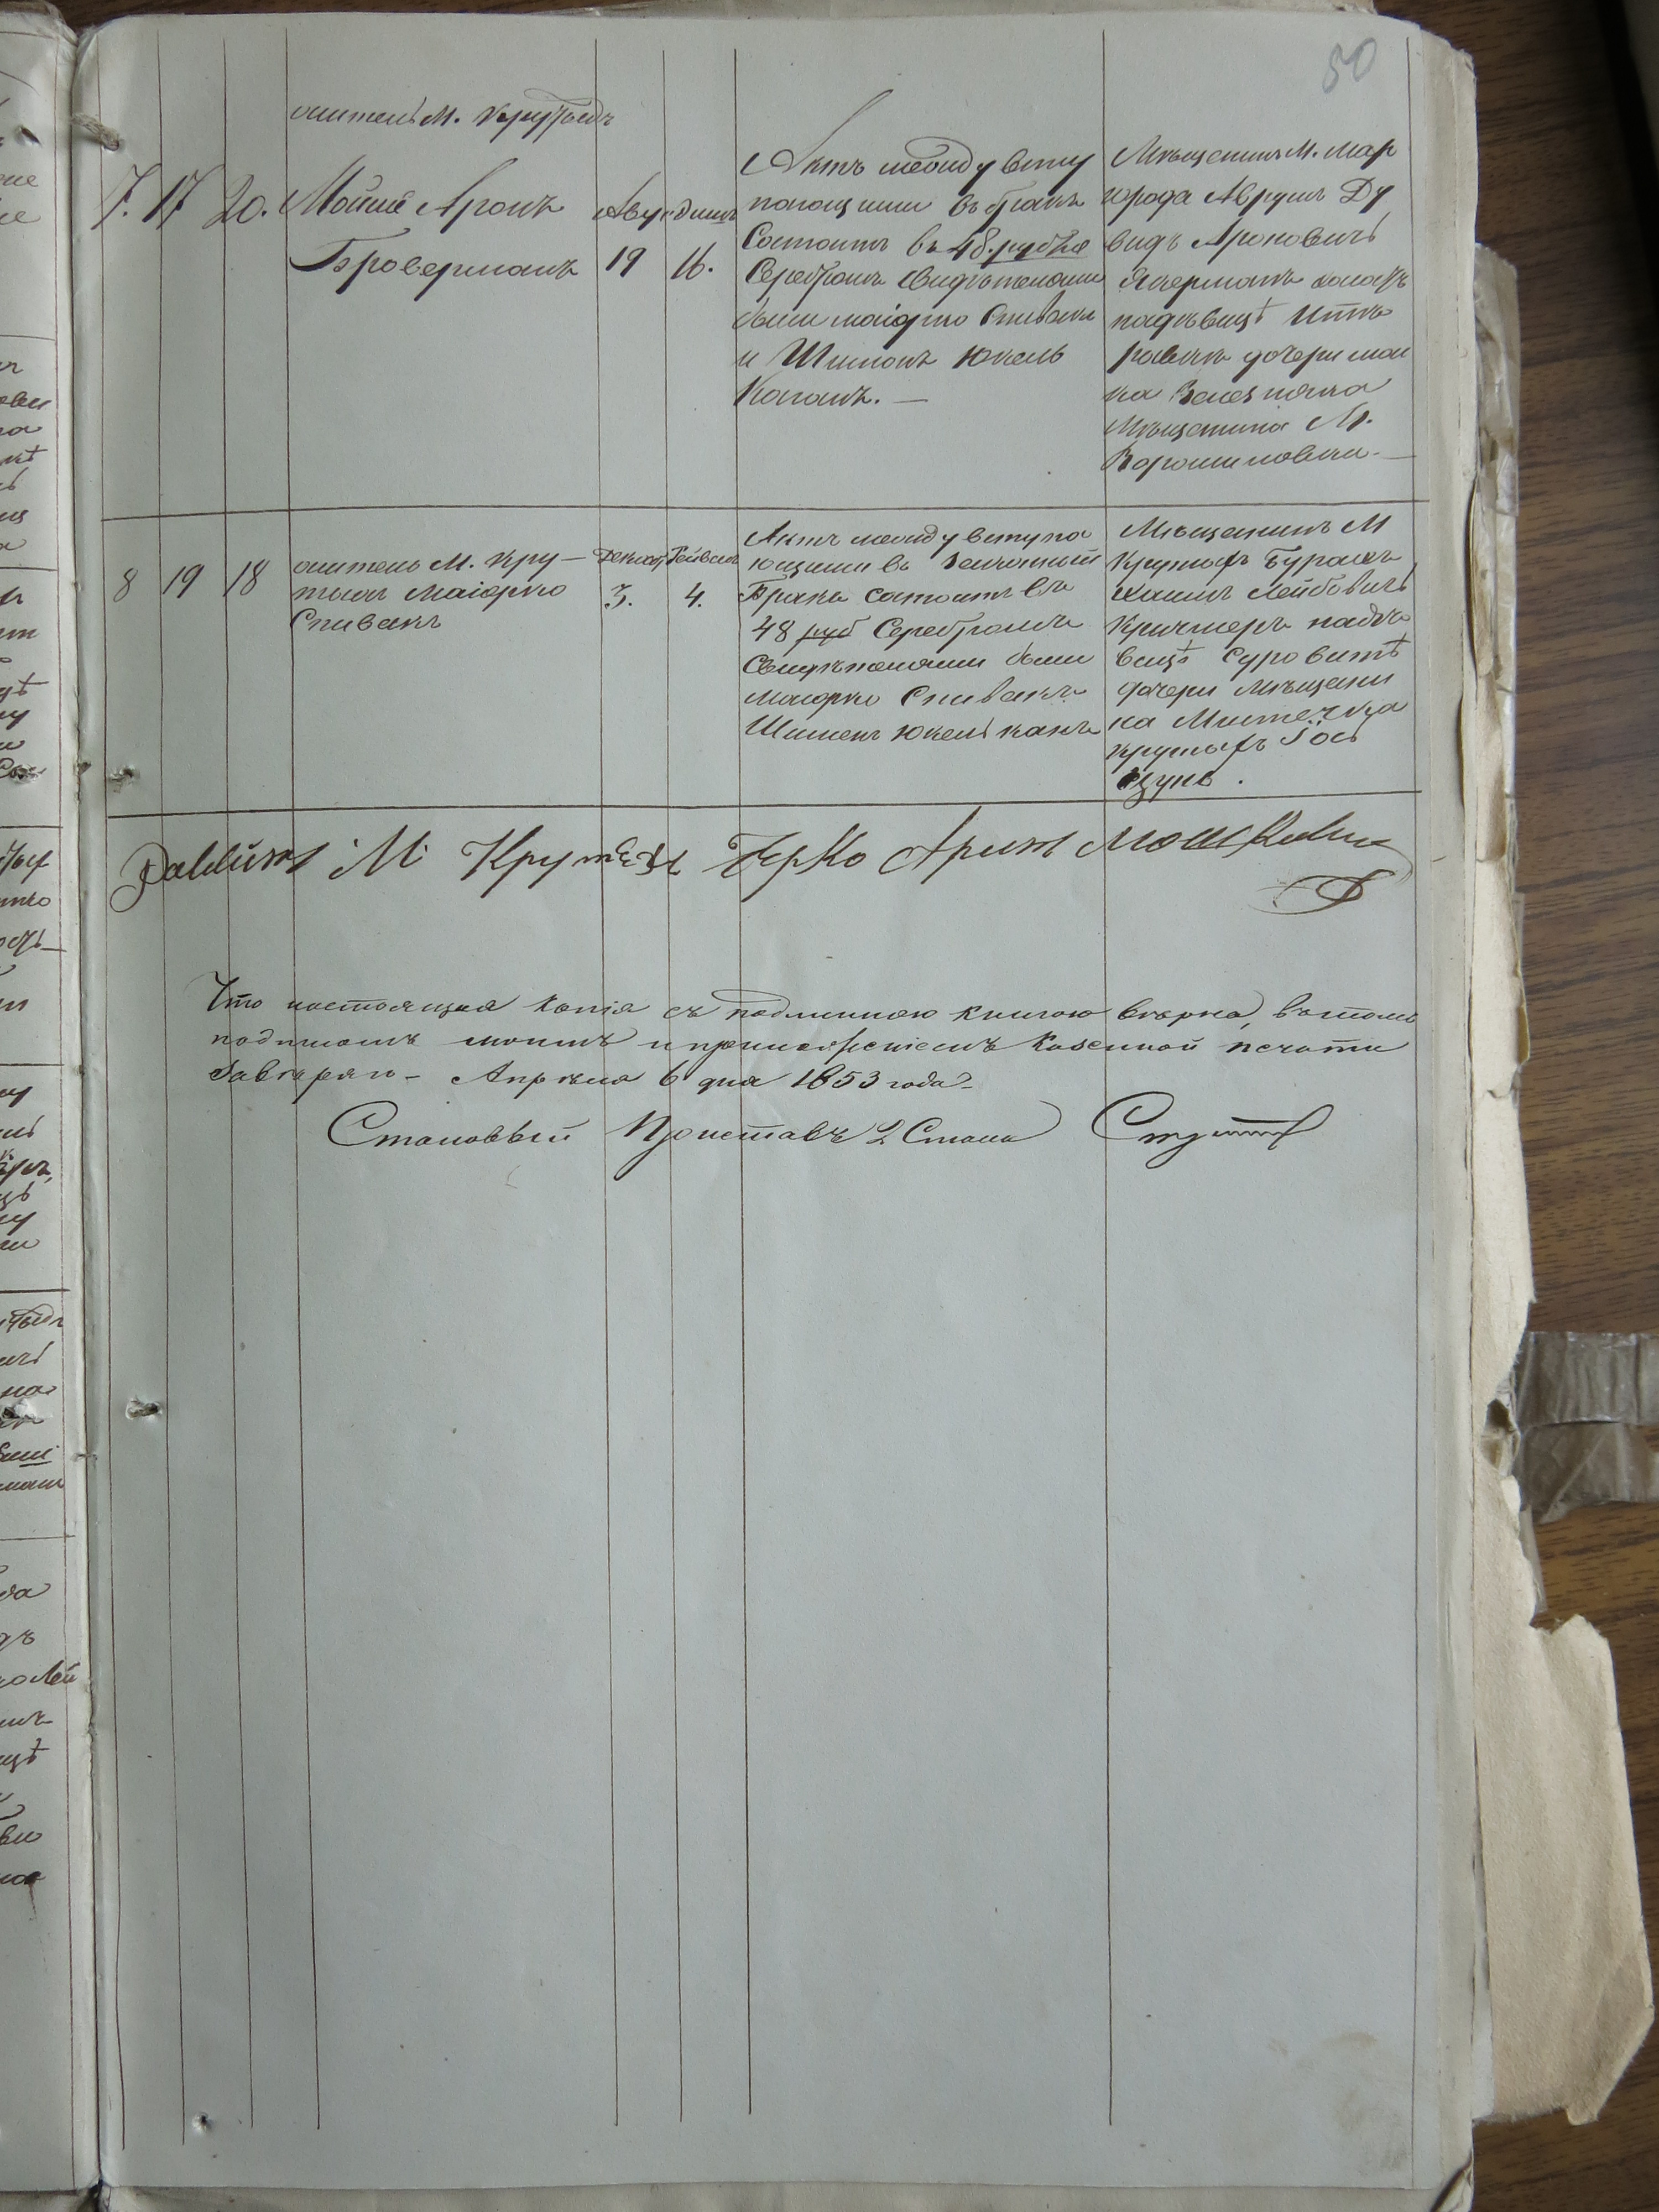 50
житель М. Крутыхъ
7. 17 20. Мойше Аронъ
Броверманъ
Авгу 19
16.
Актъ между всту
пающими въ бракъ
Состоитъ въ 48. рубле
Серебромъ Свидѣтелями
были маіорко Спивакъ
и Шимонъ Юкель
Каганъ. —
Мѣщанинъ М. Жар
города Аврумъ Ду
видъ Ароновичъ
надѣвицѣ
дочери
Мѣщанина М.
Ворошиловки —
8 19 18
житель М. Кру —
тыхъ Маіорко
Спивакъ
3. 4.
Актъ между вступа
ющими въ Законный
Бракъ состоитъ въ
48 руб Серебромъ
Свидѣтелями были
Маіорко Спивакъ
Шимонъ Юкель Каганъ
Мѣщанинъ М
Крутыхъ
Хаимъ Лейбовичъ
надѣ
вицѣ
дочери Мѣщани
на Мистечка
Крутыхъ Іось
Раввинъ М. Крутыхъ Берко Аронъ Мошковичъ
Что настоящая копія съ подлинною книгою вѣрна, въ томъ
подписомъ моимъ и приложеніемъ Казенной печати
Завѣряю — Апрѣля 6 дня 1853 года —
Становый Приставъ 2 Стана